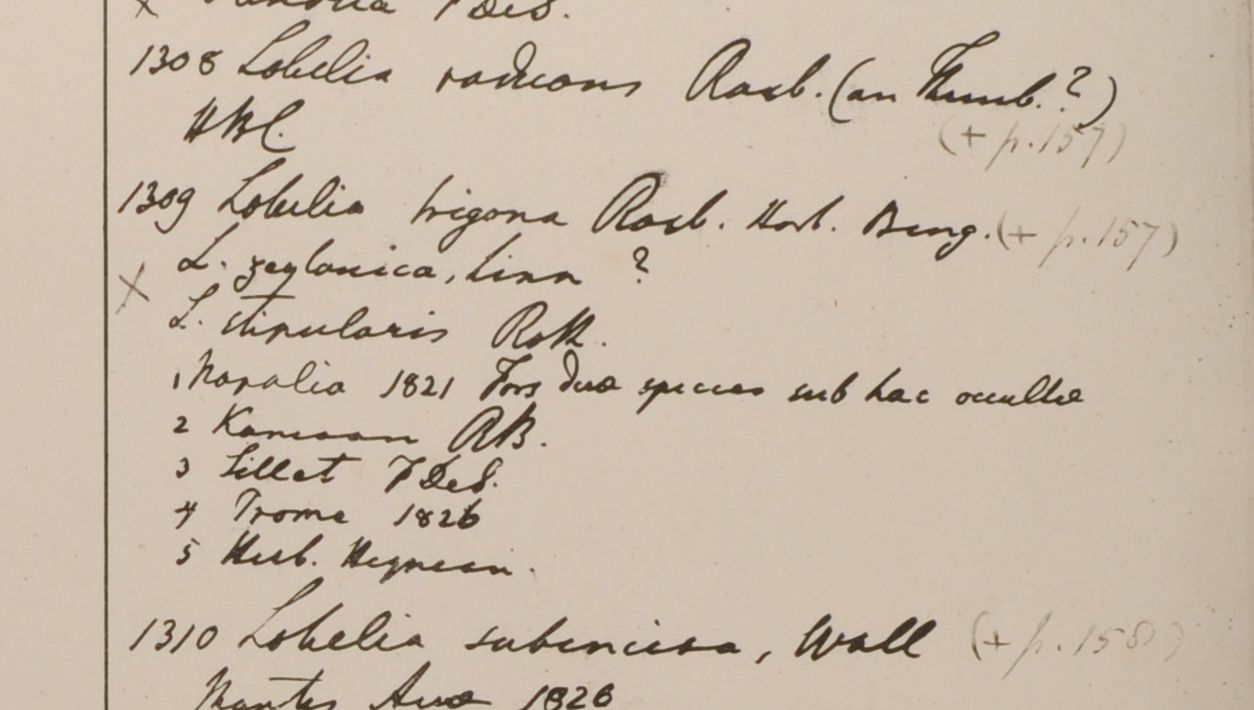 F DeS.
1308 Lobelia radicans Roxb. (an Thunb.?)
HBC. (+ p. 157)
1309 Lobelia trigona Roxb. Hort. Beng. (+ p. 157)
L. zeylanica, Linn ?
X
L. stipularis Roth.
1 Napalia 1821 Fors duæ species sub hac occultæ
2 Kamaon RB.
3 Sillet F DeS.
4 Prome 1826
5 Herb. Heynean.
1310 Lobelia subincisa, Wall (+ p. 158)
Montes Avæ 1826